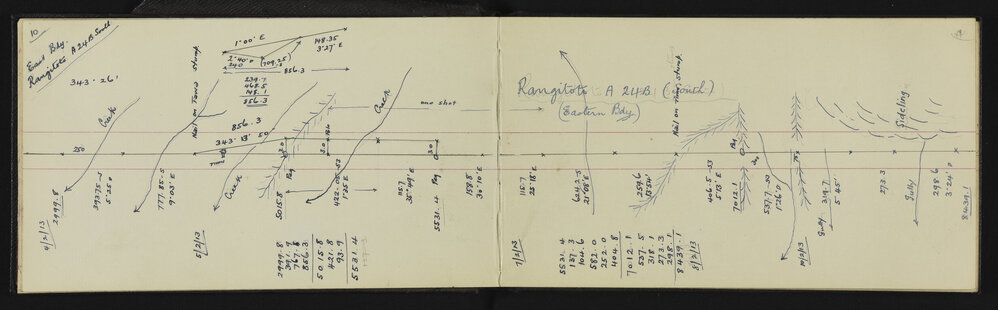 10
East Bdy.
Rangitoto A 24B South
343° 26'
Creek
250
4/2/13
2999.8
3975-3
5° 25 D
777.85-5
9° 03' E
5/2/13
Nail on Tawa stump
1° 00' E
148.35
3° 27' E
2° 40' D
(709.25)
240
856.3
239.7
468.5
148.1
856.3
856.3
343° 13' 50
Creek
5015.8
Peg
30
422-05-53
1° 25 E
Creek
115.7
35° 49' E
30
Peg
5531.4
158.8
30° 10' E
one shot
2999.8
391.9
767.8
856.3
5015.8
421.8
93.9
5531.4
Rangitoto A 24B (South)
(Eastern Bdy)
7/2/13
115.7
25° 18' E
624.5-5
21° 05' E
259.6
13° 54'
Nail on Ring stump
406.5-53
5° 13' E
Peg
7012.1
537.7-50
1° 26' D
Peg
Gully
319.7
5° 45'
273.3
Sideling
Gully
298.6
3° 24' D
8439.1
5531.4
137.3
104.6
582.0
252.0
404.8
7012.1
537.5
318.1
273.3
298.1
8439.1
8/2/13